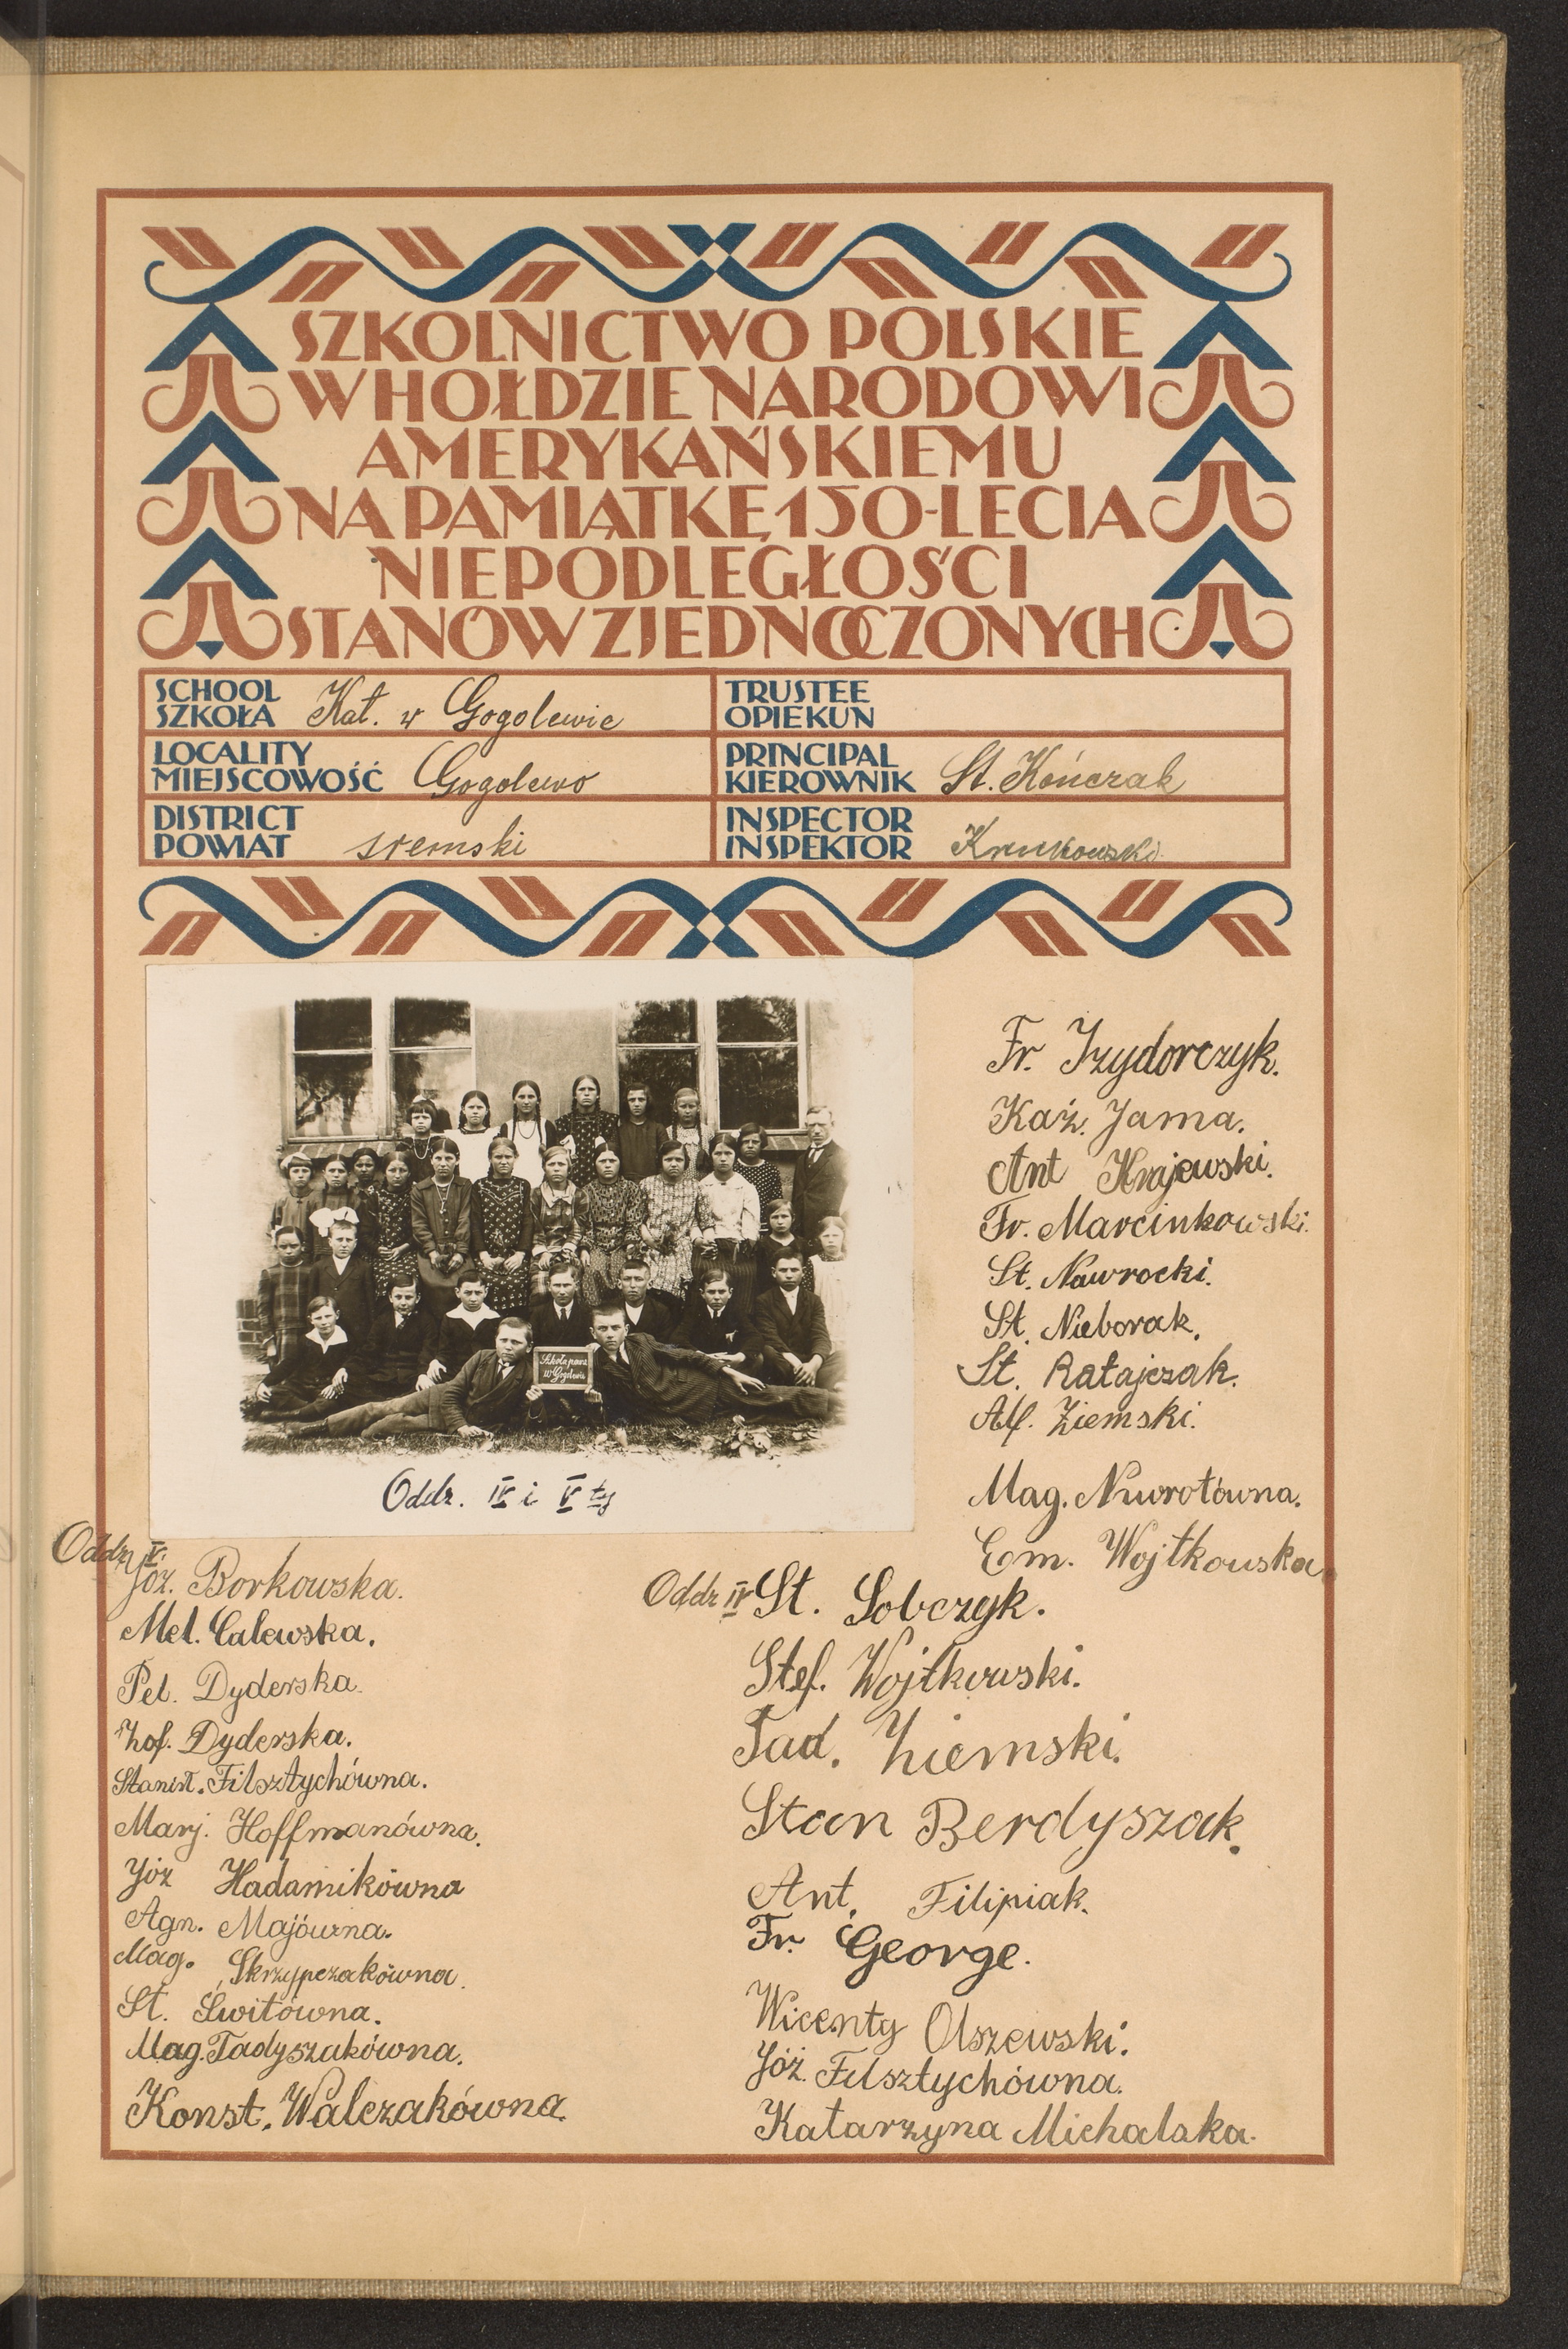 SZKOLNICTWO POLSKIE
W HOŁDZIE NARODOWI
AMERYKAŃSKIEMU
NA PAMIĄTKĘ 150-LECIA
NIEPODLEGŁOŚCI
STANÓW ZJEDNOCZONYCH
SCHOOL
SZKOŁA Kat. w Gogolewie
TRUSTEE
OPIEKUN
LOCALITY
MIEJSCOWOŚĆ Gogolewo
PRINCIPAL
KIEROWNIK St. Kończak
DISTRICT
POWIAT śremski
INSPECTOR
INSPEKTOR Krukowski
Szkoła
w Gogolewie
Oddz. IV i V tej
Fr. Izydorczyk.
Kaź. Jama.
Ant Krajewski.
Fr. Marcinkowski.
St. Nawrocki.
St. Nieborak.
St. Ratajczak.
Alf. Ziemski.
Mag. Nawrotówna.
Em. Wojtkowska
Oddz V.
Józ. Borkowska.
Mel. Calewska.
Pel. Dyderska.
Zof. Dyderska.
Stanisł. Filsztychówna.
Marj. Hoffmanówna.
Józ Hadamikówna
Agn. Majówna.
Mag. Skrzypczakówna.
St. Świtówna.
Mag. Tadyszakówna.
Konst. Walczakówna.
Oddz IV St. Sobczyk.
Stef. Wojtkowski.
Tad. Ziemski.
Stan Berdyszak.
Ant. Filipiak.
Fr. George.
Wicenty Olszewski.
Józ. Filsztychówna.
Katarzyna Michalska.